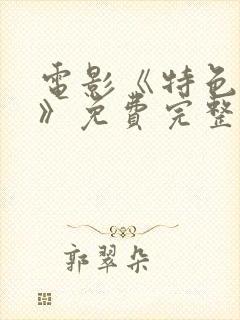 電影《特色
》免費完整
郭翠朵